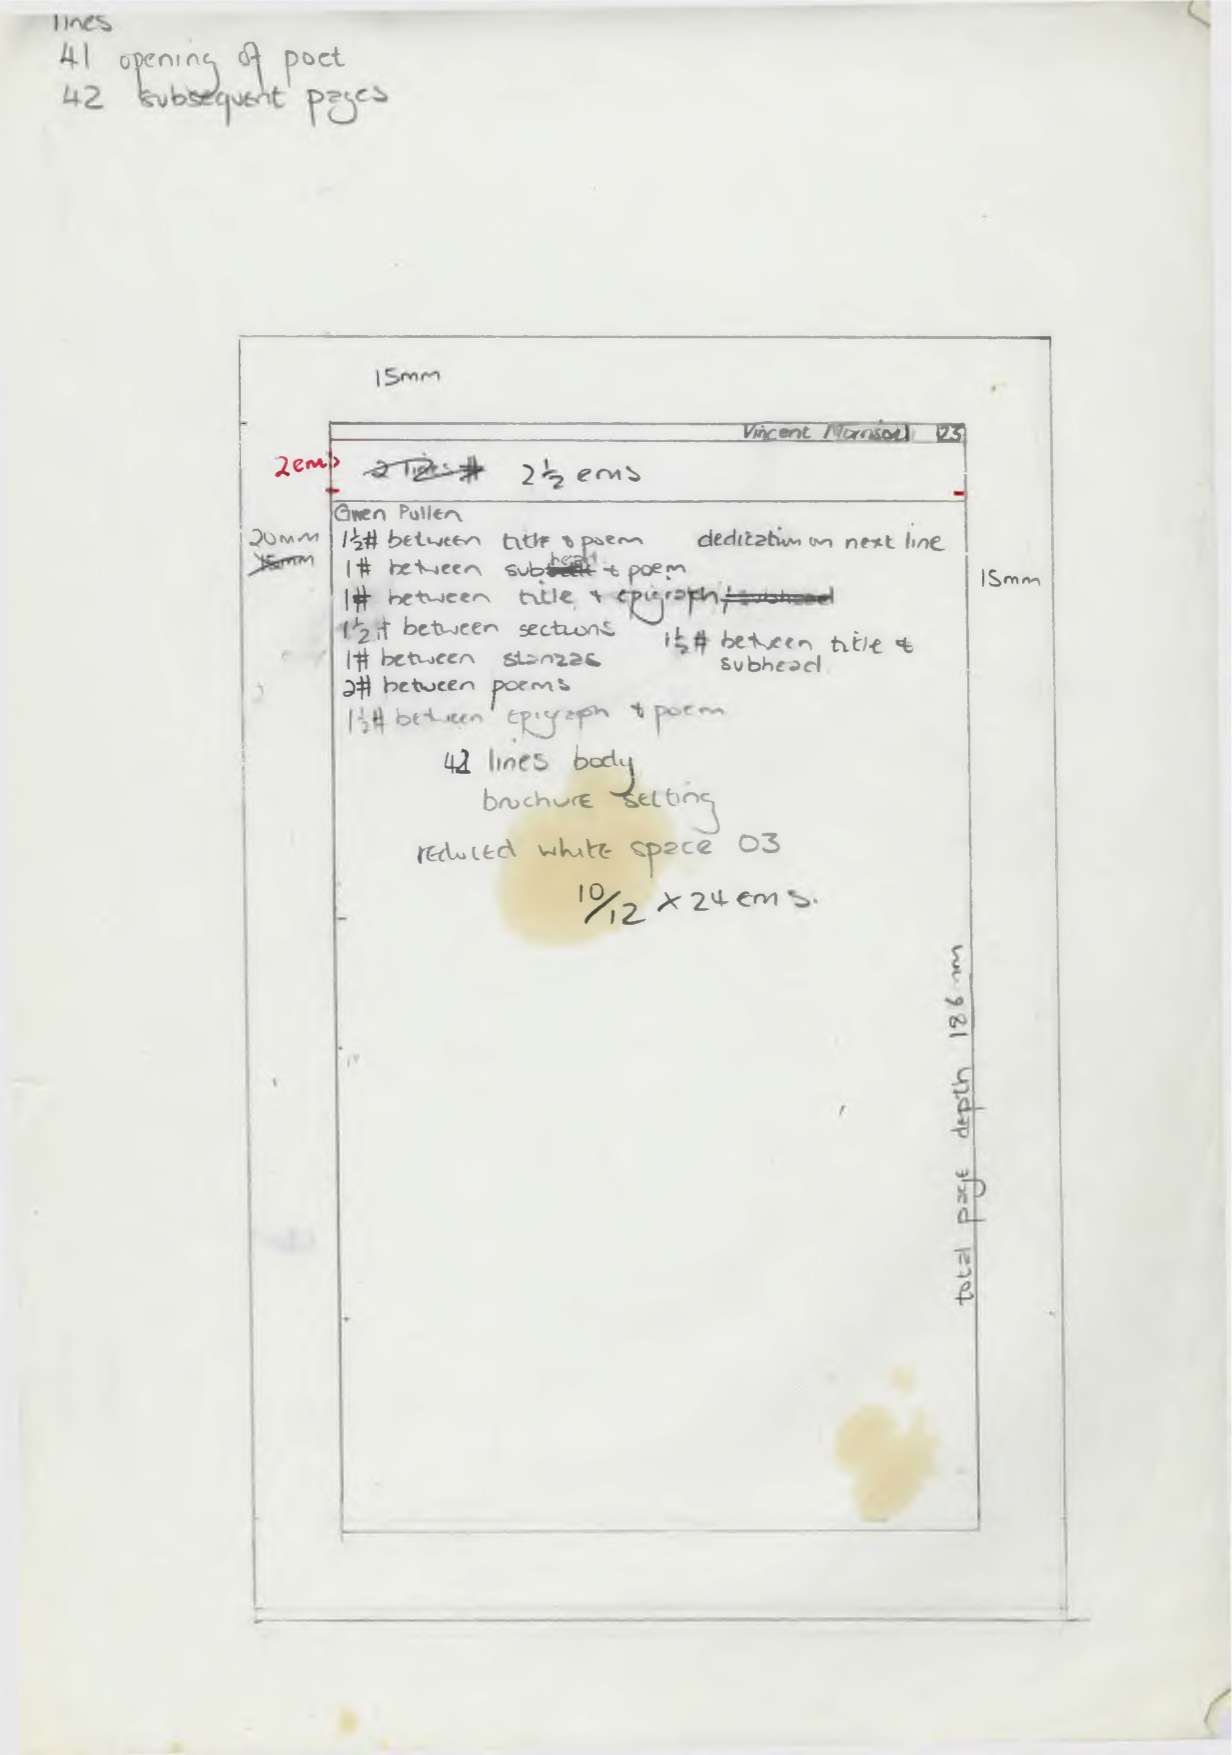 lines
41 opening of poet
42 subsequent pages
15mm
Vincent Morrison 23
2 ems 2 lines # 2½ ems
Gwen Pullen
20mm 1½# between title & poem dedication on next line
15mm 1# between subhead & poem
15mm
1# between title & epigraph, + subhead
1½# between sections 1½# between title &
subhead
1# between stanzas
2# between poems
1½# between epigraph & poem
42 lines body
brochure setting
reduced white space 03
10/12 × 24 ems.
total page depth 186mm